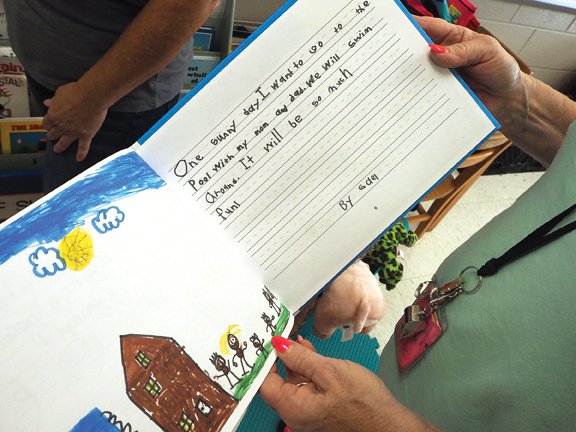 One sunny day I want to go to the
Pool with my mom and dad. We will swim
around. It will be so much
fun!
By